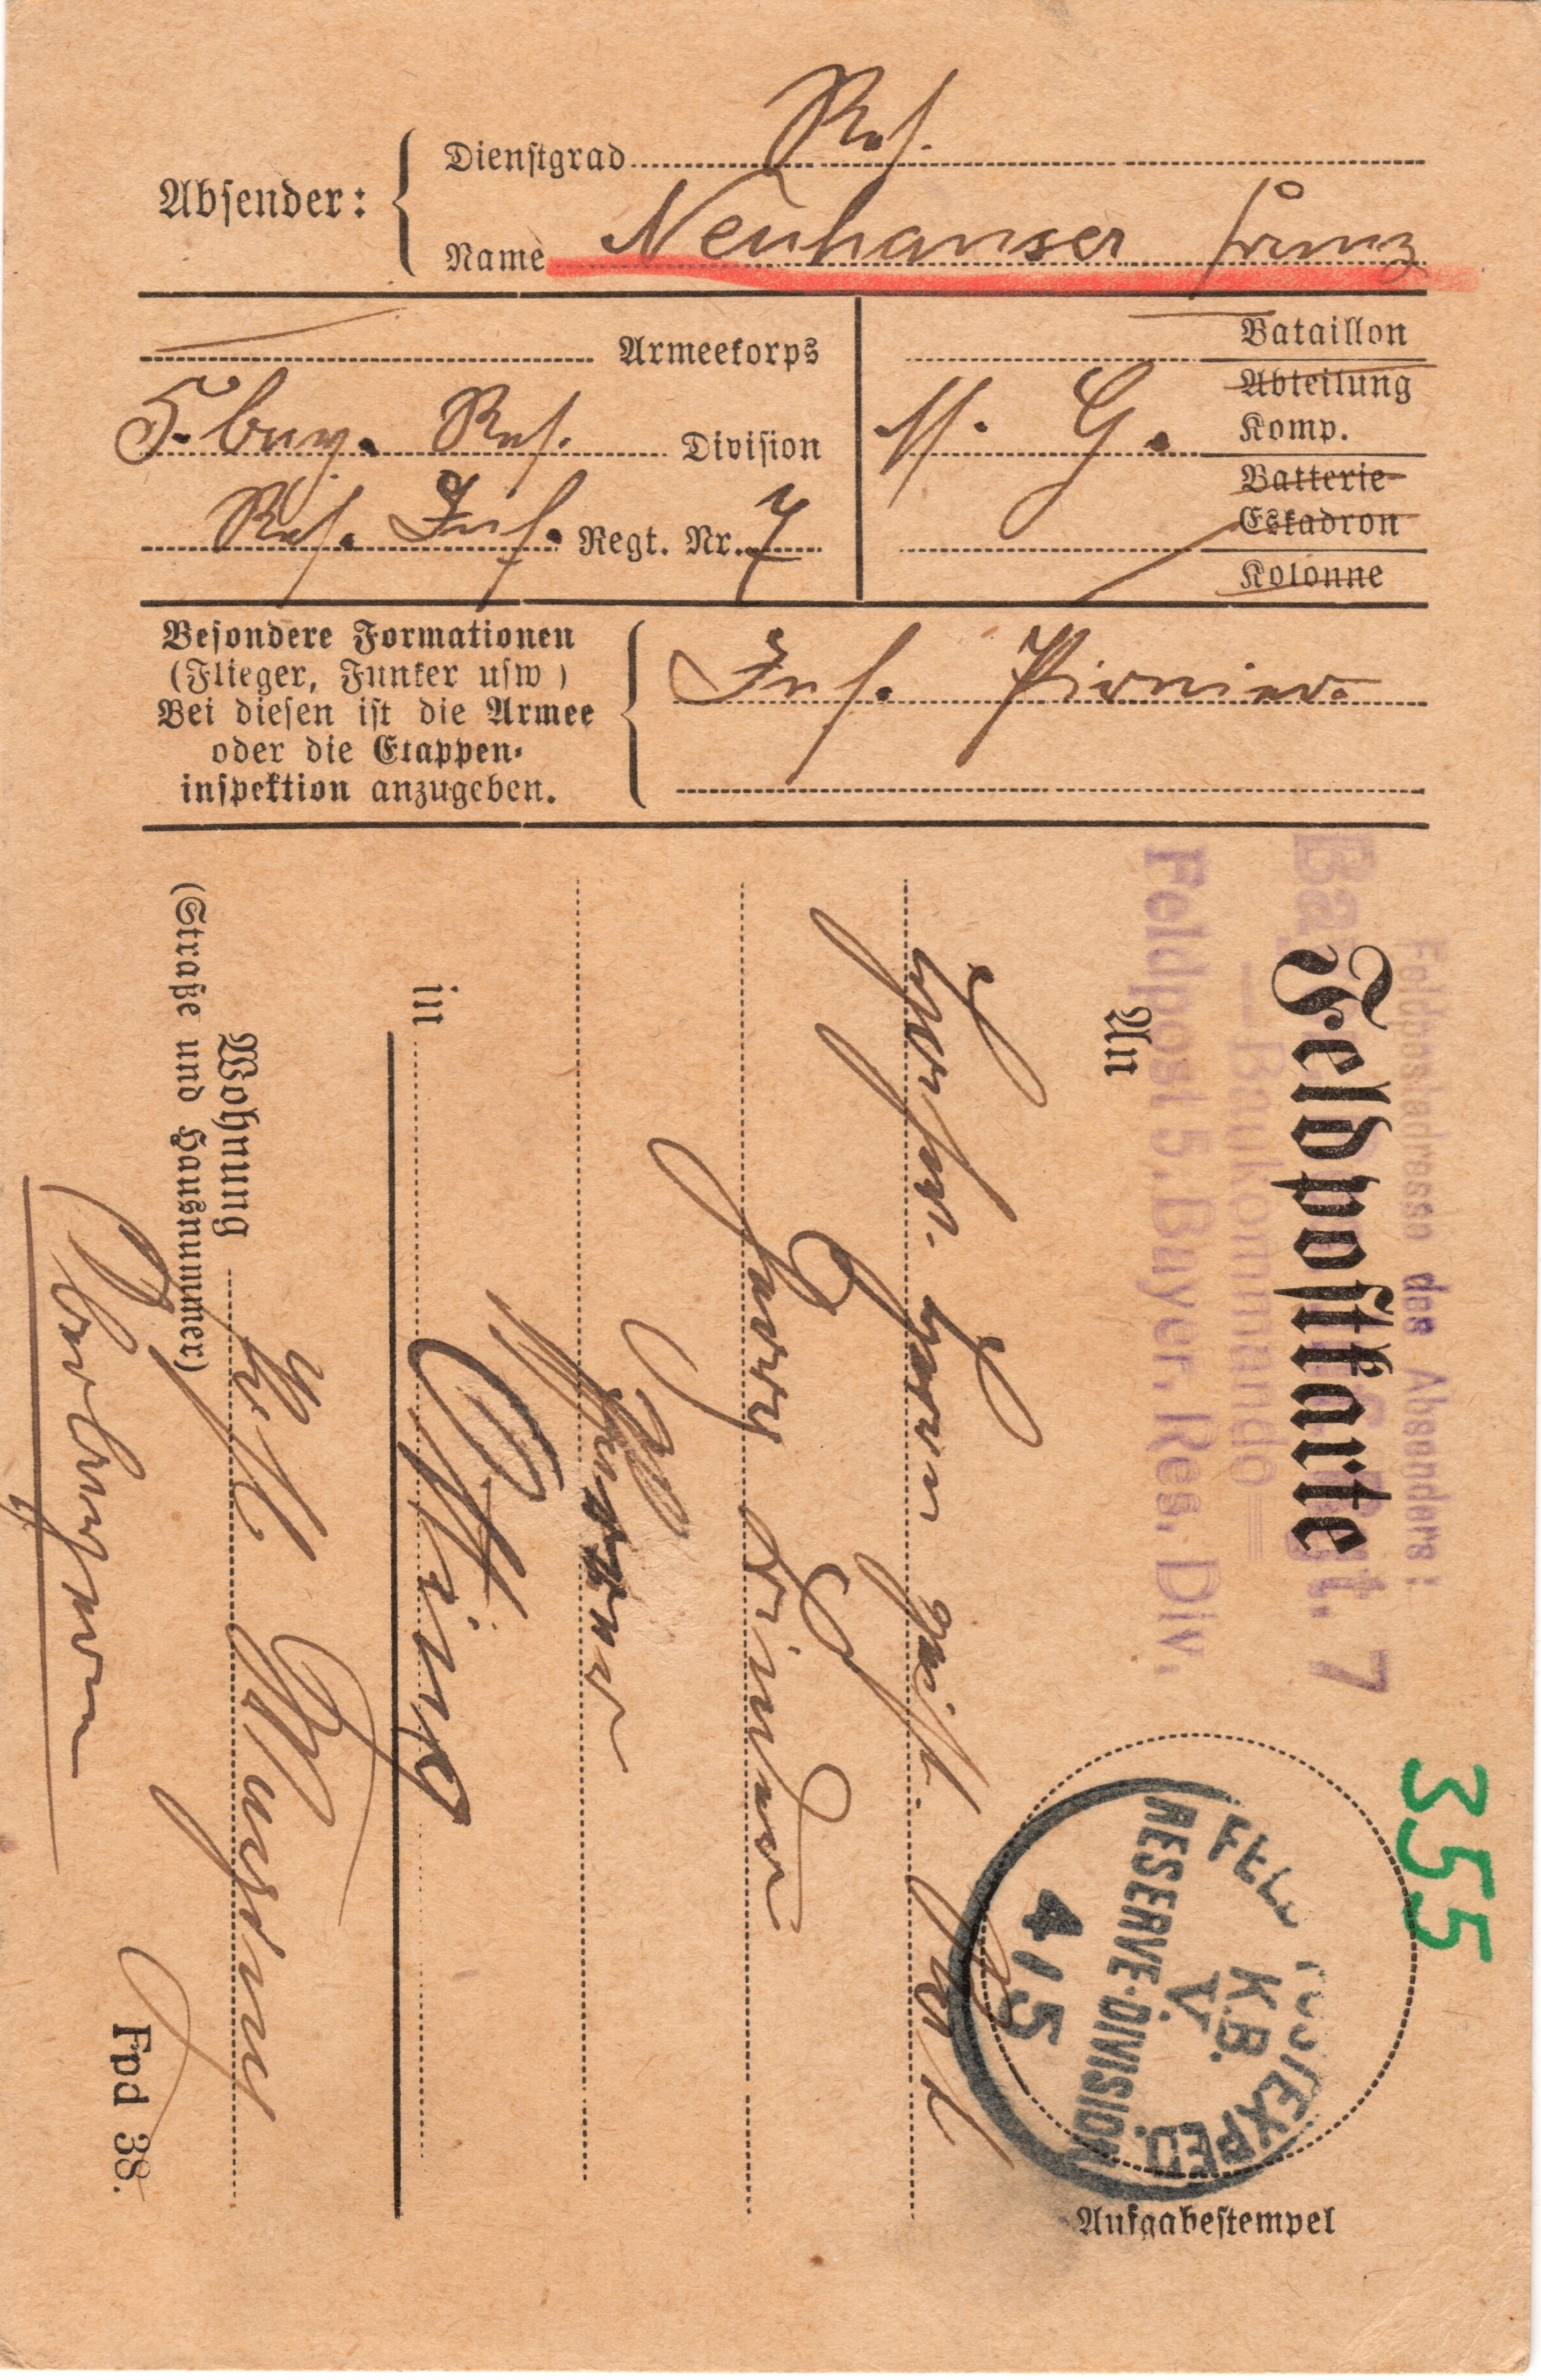 Absender:
Dienstgrad Res.
Name Neuhauser Franz
Armeekorps
5. bay. Res. Division
Res. Inf. Regt. Nr. 7
Bataillon
Abteilung
M. G. Komp.
Batterie
Eskadron
Kolonne
Besondere Formationen
(Flieger, Funker usw)
Bei diesen ist die Armee
oder die Etappen-
inspektion anzugeben.
Inf. Pionier.
Feldpostadresse des Absenders:
Regt. 7
Baukommando
Feldpost 5. Bayer. Res. Div.
355
Feldpostkarte
An
Hochw. Herrn
in Otting
Wohnung
(Straße und Hausnummer)
Oberbayern
FELDPOSTEXPED.
K.B.
V.
RESERVE-DIVISION
4/5
Aufgabestempel
Fpd 38.